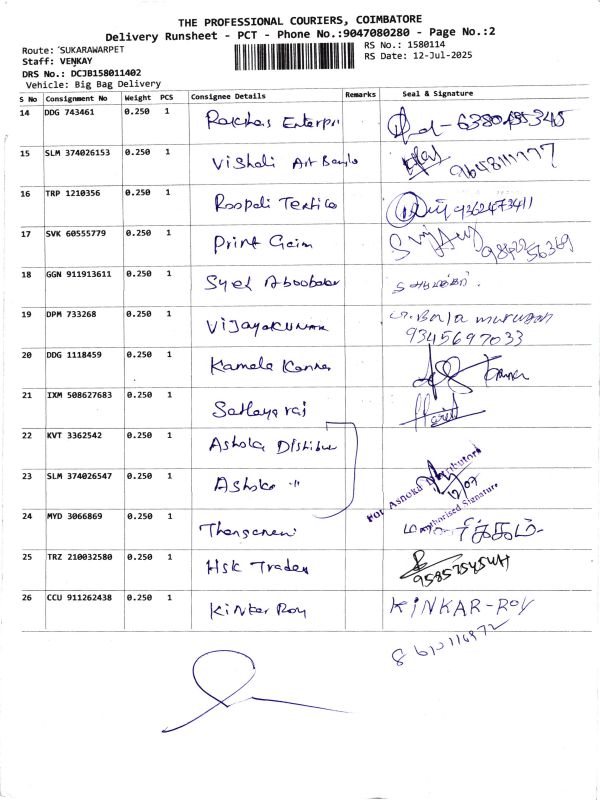 THE PROFESSIONAL COURIERS, COIMBATORE
Delivery Runsheet - PCT - Phone No.:9047080280 - Page No.:2
Route: SUKARAWARPET
RS No.: 1580114
Staff: VENKAY
RS Date: 12-Jul-2025
DRS No.: DCJB158011402
Vehicle: Big Bag Delivery
S No Consignment No Weight PCS Consignee Details Remarks Seal & Signature
14 DDG 743461 0.250 1
15 SLM 374026153 0.250 1 Vishali Art
16 TRP 1210356 0.250 1 9362473411
17 SVK 60555779 0.250 1 Print
18 GGN 911913611 0.250 1 Syed
19 DPM 733268 0.250 1 Vijayakumar Bala murugan
9345697033
20 DDG 1118459 0.250 1 Kamala
21 IXM 508627683 0.250 1 Sathayaraj
22 KVT 3362542 0.250 1 Ashoka
23 SLM 374026547 0.250 1 Ashoka "
For Ashoka Distributors
12/07
Authorised Signature
24 MYD 3066869 0.250 1
25 TRZ 210032580 0.250 1 HSK Trades
26 CCU 911262438 0.250 1 Kinkar Roy KINKAR-ROY